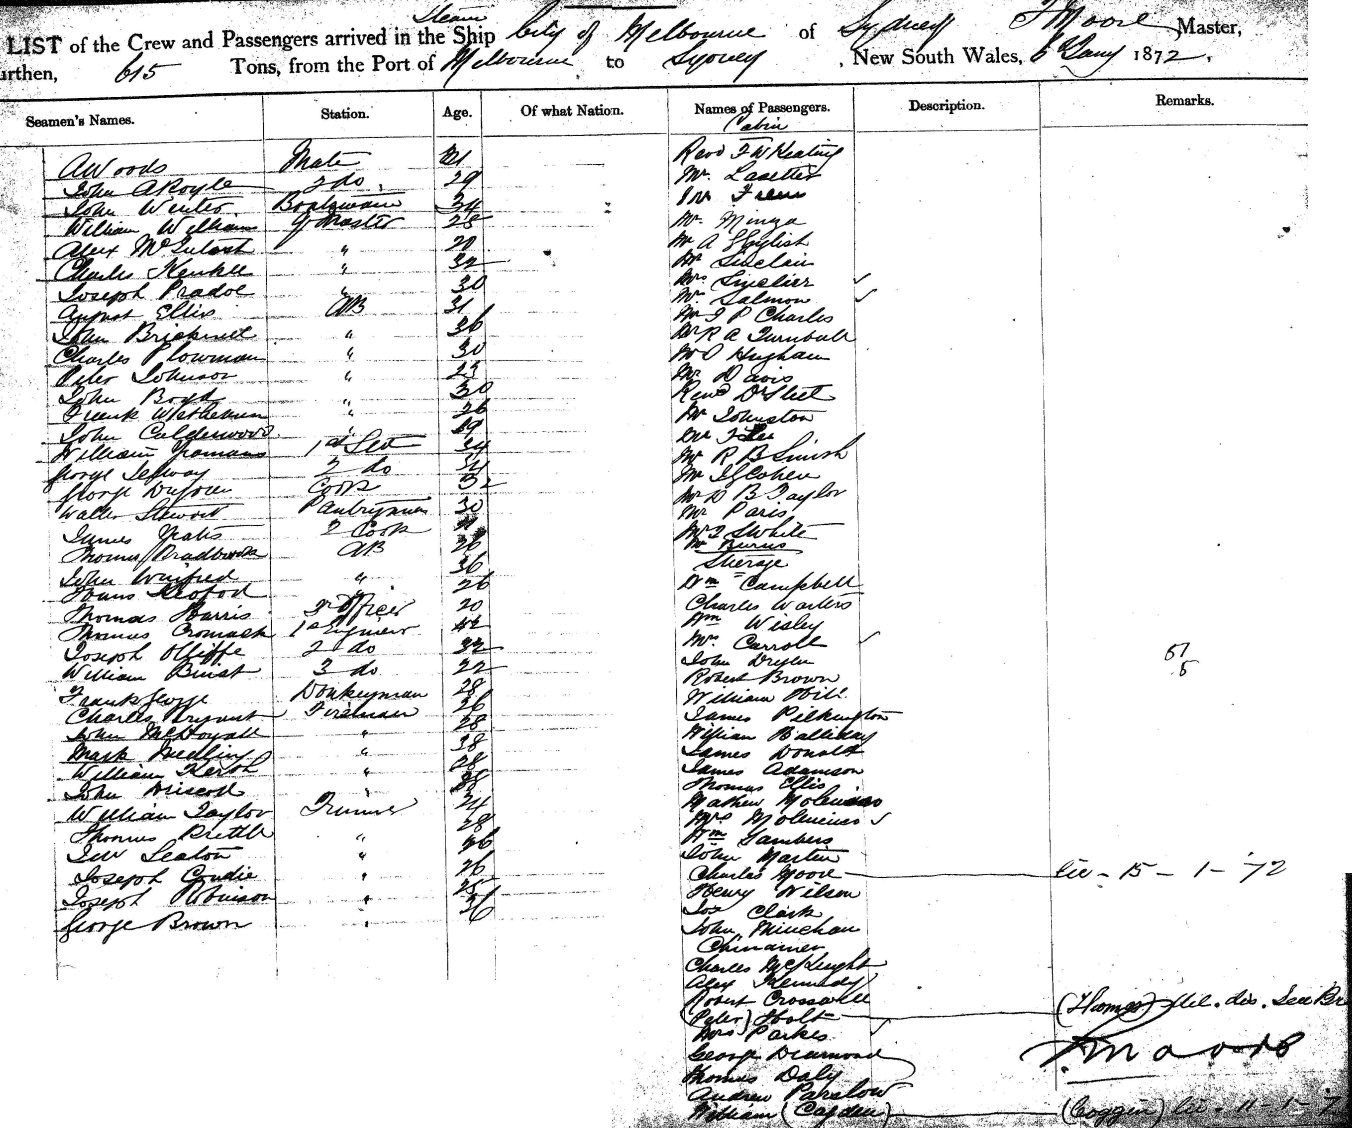 LIST of the Crew and Passengers arrived in the Steam Ship City of Melbourne of Sydney F Moore Master,
urthen, 615 Tons, from the Port of Melbourne to Sydney, New South Wales, 6 Jany 1872.
Seamen's Names. Station. Age. Of what Nation. Names of Passengers. Description. Remarks.
Cabin
A Woods Mate
John A Royle 2 do. 29
John Winter Boatswain 34
William William Qr Master 28
Alex McIntosh " 20
Charles " 32
Joseph Pradoe " 30
August Ellis AB 31
John Bricknell " 36
Charles Plowman " 30
Peter Johnson " 23
John Boyd " 30
Frank " 26
John Calderwood " 19
William Yeomans 1st 34
George 2 do 34
George Cook 32
Walter Stewart Pantryman 30
James Yeats 2 Cook
Thomas Bradbrook AB 26
John Winifred " 36
Hans " 26
Thomas Harris 20
Thomas Cromack 1st Engineer 42
Joseph Olliffe 2 do 32
William Buist 3 do 22
Frank George Donkeyman 28
Charles Bryant Fireman 26
John McDougall " 28
Mark " 38
William Keith " 28
John Driscoll "
William Taylor Trimmer 24
Thomas Brettle " 28
Seaton " 26
Joseph Goudie " 26
Joseph Robinson " 25
George Brown " 36
Revd F W Keating
Mr Lassetter
Mr
Mr Minga
Mr A
Mr Sinclair
Mrs Sinclair
Mr Salmon
Mr J P Charles
Mr R A Turnbull
Mr Hugham
Mr Davis
Revd Dr Steel
Mr Johnston
Mr
Mr R B Smith
Mr Cohen
Mr D B Taylor
Mr Paris
Mr J S White
Mr Burns
Steerage
Wm Campbell
Charles Warters
Wm Wisley
Mrs Carroll
John Dryden
Robert Brown
William Hill
James Pilkington
William Balliday
James Donald
James Adamson
Thomas Ellis
Mathew Molenieux
Mrs Molenieux
Wm Sambers
John Martin
Charles Moore
Henry Wilson
Jos Clark
John Minehan
Chinamen
Charles McKnight
Alex Kennedy
Robert Crosswell
(Peter) Holt
Mrs Parkes
George Diamond
Thomas Daly
Andrew Parslow
William (Cayden)
57
5
15-1-72
(Thomas) dis.
F. Moore
(Coggin) 11-1-7